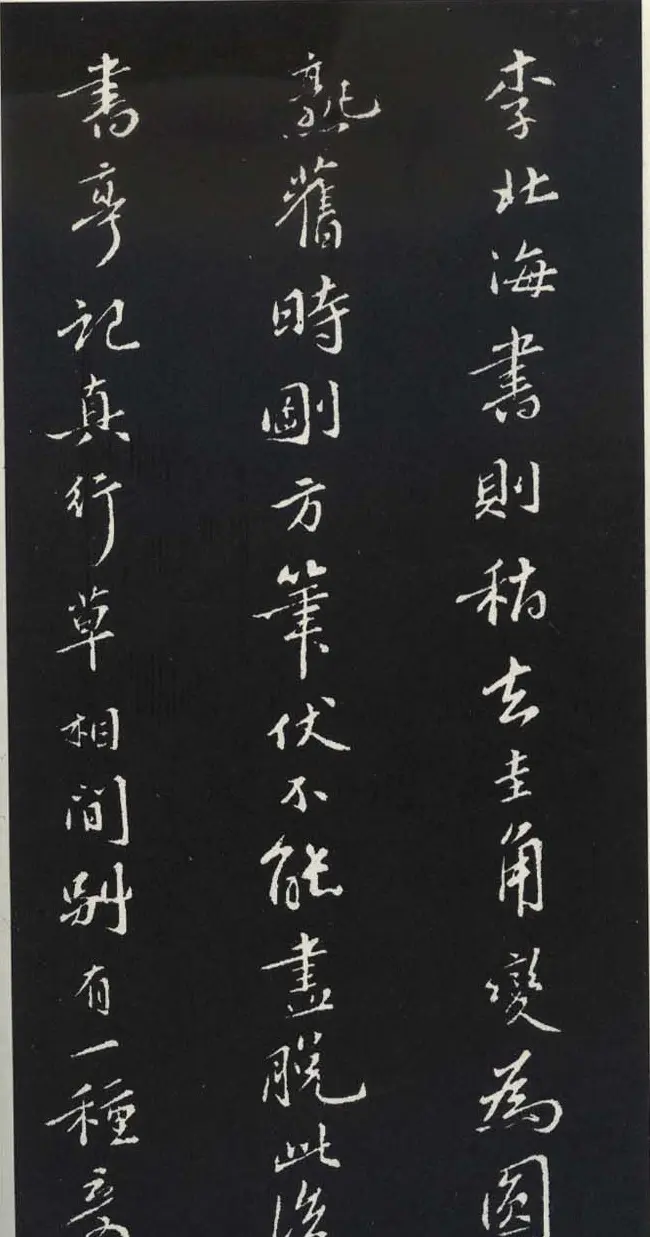 李北海書則稍去圭角變為圓
熟舊時剛方筆伏不能盡脫此後
書亭記真行草相間別有一種意